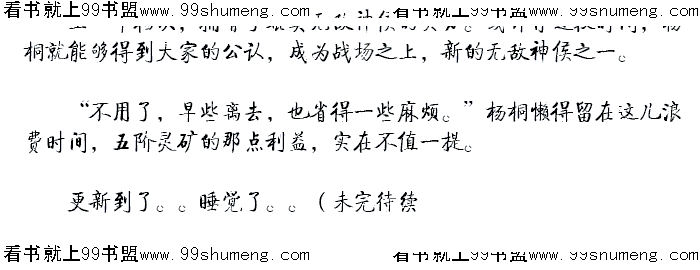 看书就上99书盟www.99shumeng.com 看书就上99书盟www.99shumeng.com
桐就能够得到大家的公认，成为战场之上，新的无敌神侯之一。
“不用了，早些离去，也省得一些麻烦。”杨桐懒得留在这儿浪
费时间，五阶灵矿的那点利益，实在不值一提。
更新到了。。睡觉了。。（未完待续
看书就上99书盟www.99shumeng.com 看书就上99书盟www.99shumeng.com